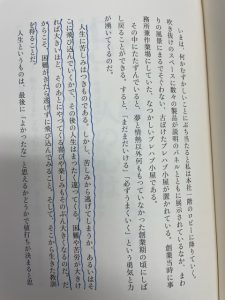 いまは、何かむずかしいことにぶち当たると私は本社一階のロビーに降りていく。
吹き抜けのスペースに数々の製品が説明のパネルとともに展示されているなか、まわ
りの風景にまるでそぐわない、古ぼけたプレハブ小屋が置かれている。創業当時に事
務所兼作業場にしていた、なつかしいプレハブ小屋である。
その中にたたずんでいると、夢と情熱以外何ももっていなかった創業期の頃にしば
し戻ることができる。すると、「まだまだいける」「必ずうまくいく」という勇気と力
が湧いてくるのだ。
人生に苦しみはつきものである。しかし、苦しみから逃げてしまうか、あるいはそ
こに飛び込んでいくかで、その後の人生はまったく違ってくる。困難や苦労が大きけ
れば大きいほど、そのあとにやってくる喜びや楽しみもそのぶん大きくなるのだ。だ
からこそ、困難がきたら逃げずに飛び込んでみること。そして、そこから生きた教訓
を得ることだ。
人生というものは、最後に「よかったな」と思えるかどうかで値打ちが決まると思